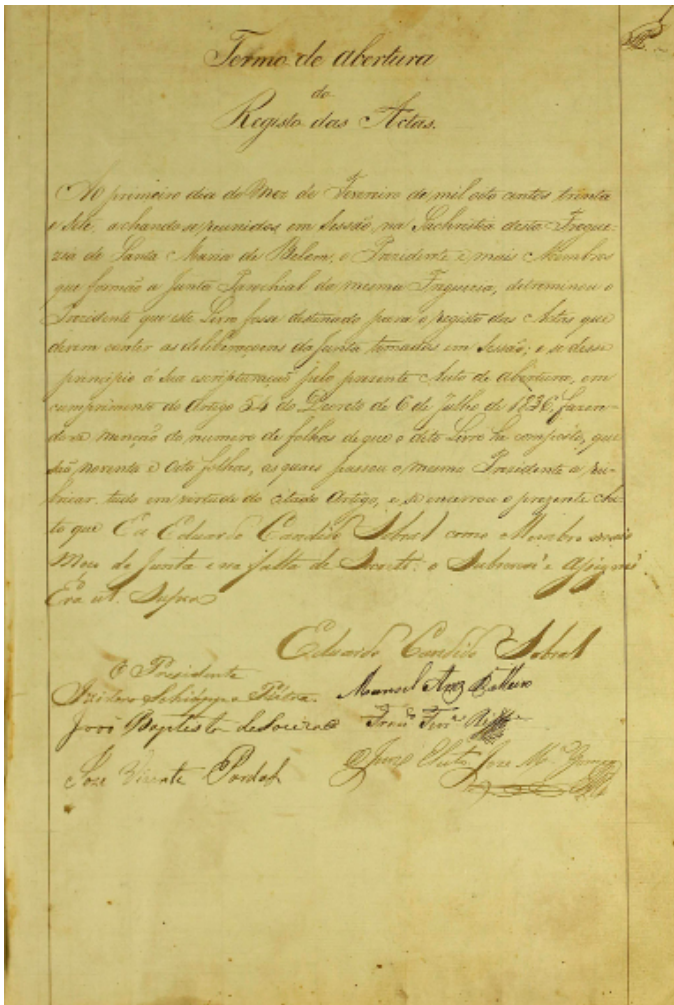 Termo de Abertura
do
Registo das Actas.
Ao primeiro dia do Mez de Fevereiro de mil oito centos trinta
e sete, achando se reunidos em Sessão, na Sachristia desta Fregue-
zia de Santa Maria de Belem, o Prezidente e mais Membros
que formão a Junta Parochial da mesma Freguezia, determinou o
Prezidente que este Livro fosse destinado para o registo das Actas que
devem conter as deliberaçoens da Junta tomadas em Sessão; e se desse
principio á sua escripturação pelo presente Auto de abertura, em
cumprimento do Artigo 54 do Decreto de 6 de Julho de 1836, fazen-
do se menção do numero de folhas de que o dito Livro he composto, que
são noventa e Oito folhas, as quais passou o mesmo Prezidente a ru-
bricar, tudo em virtude do citado Artigo, e se encerrou o prezente Au-
to que Eu Eduardo Candido Sobral como Membro mais
Moço da Junta e na falta de Secret.: o Subscrevi e Assignei
Era ut. Supra
Eduardo Candido Sobral
O Presidente
Izidoro Schiappa Pietra Manoel
João Baptista de Souza
Joze Vicente Pardal O Juiz Eleito Joze M.ª Gomes